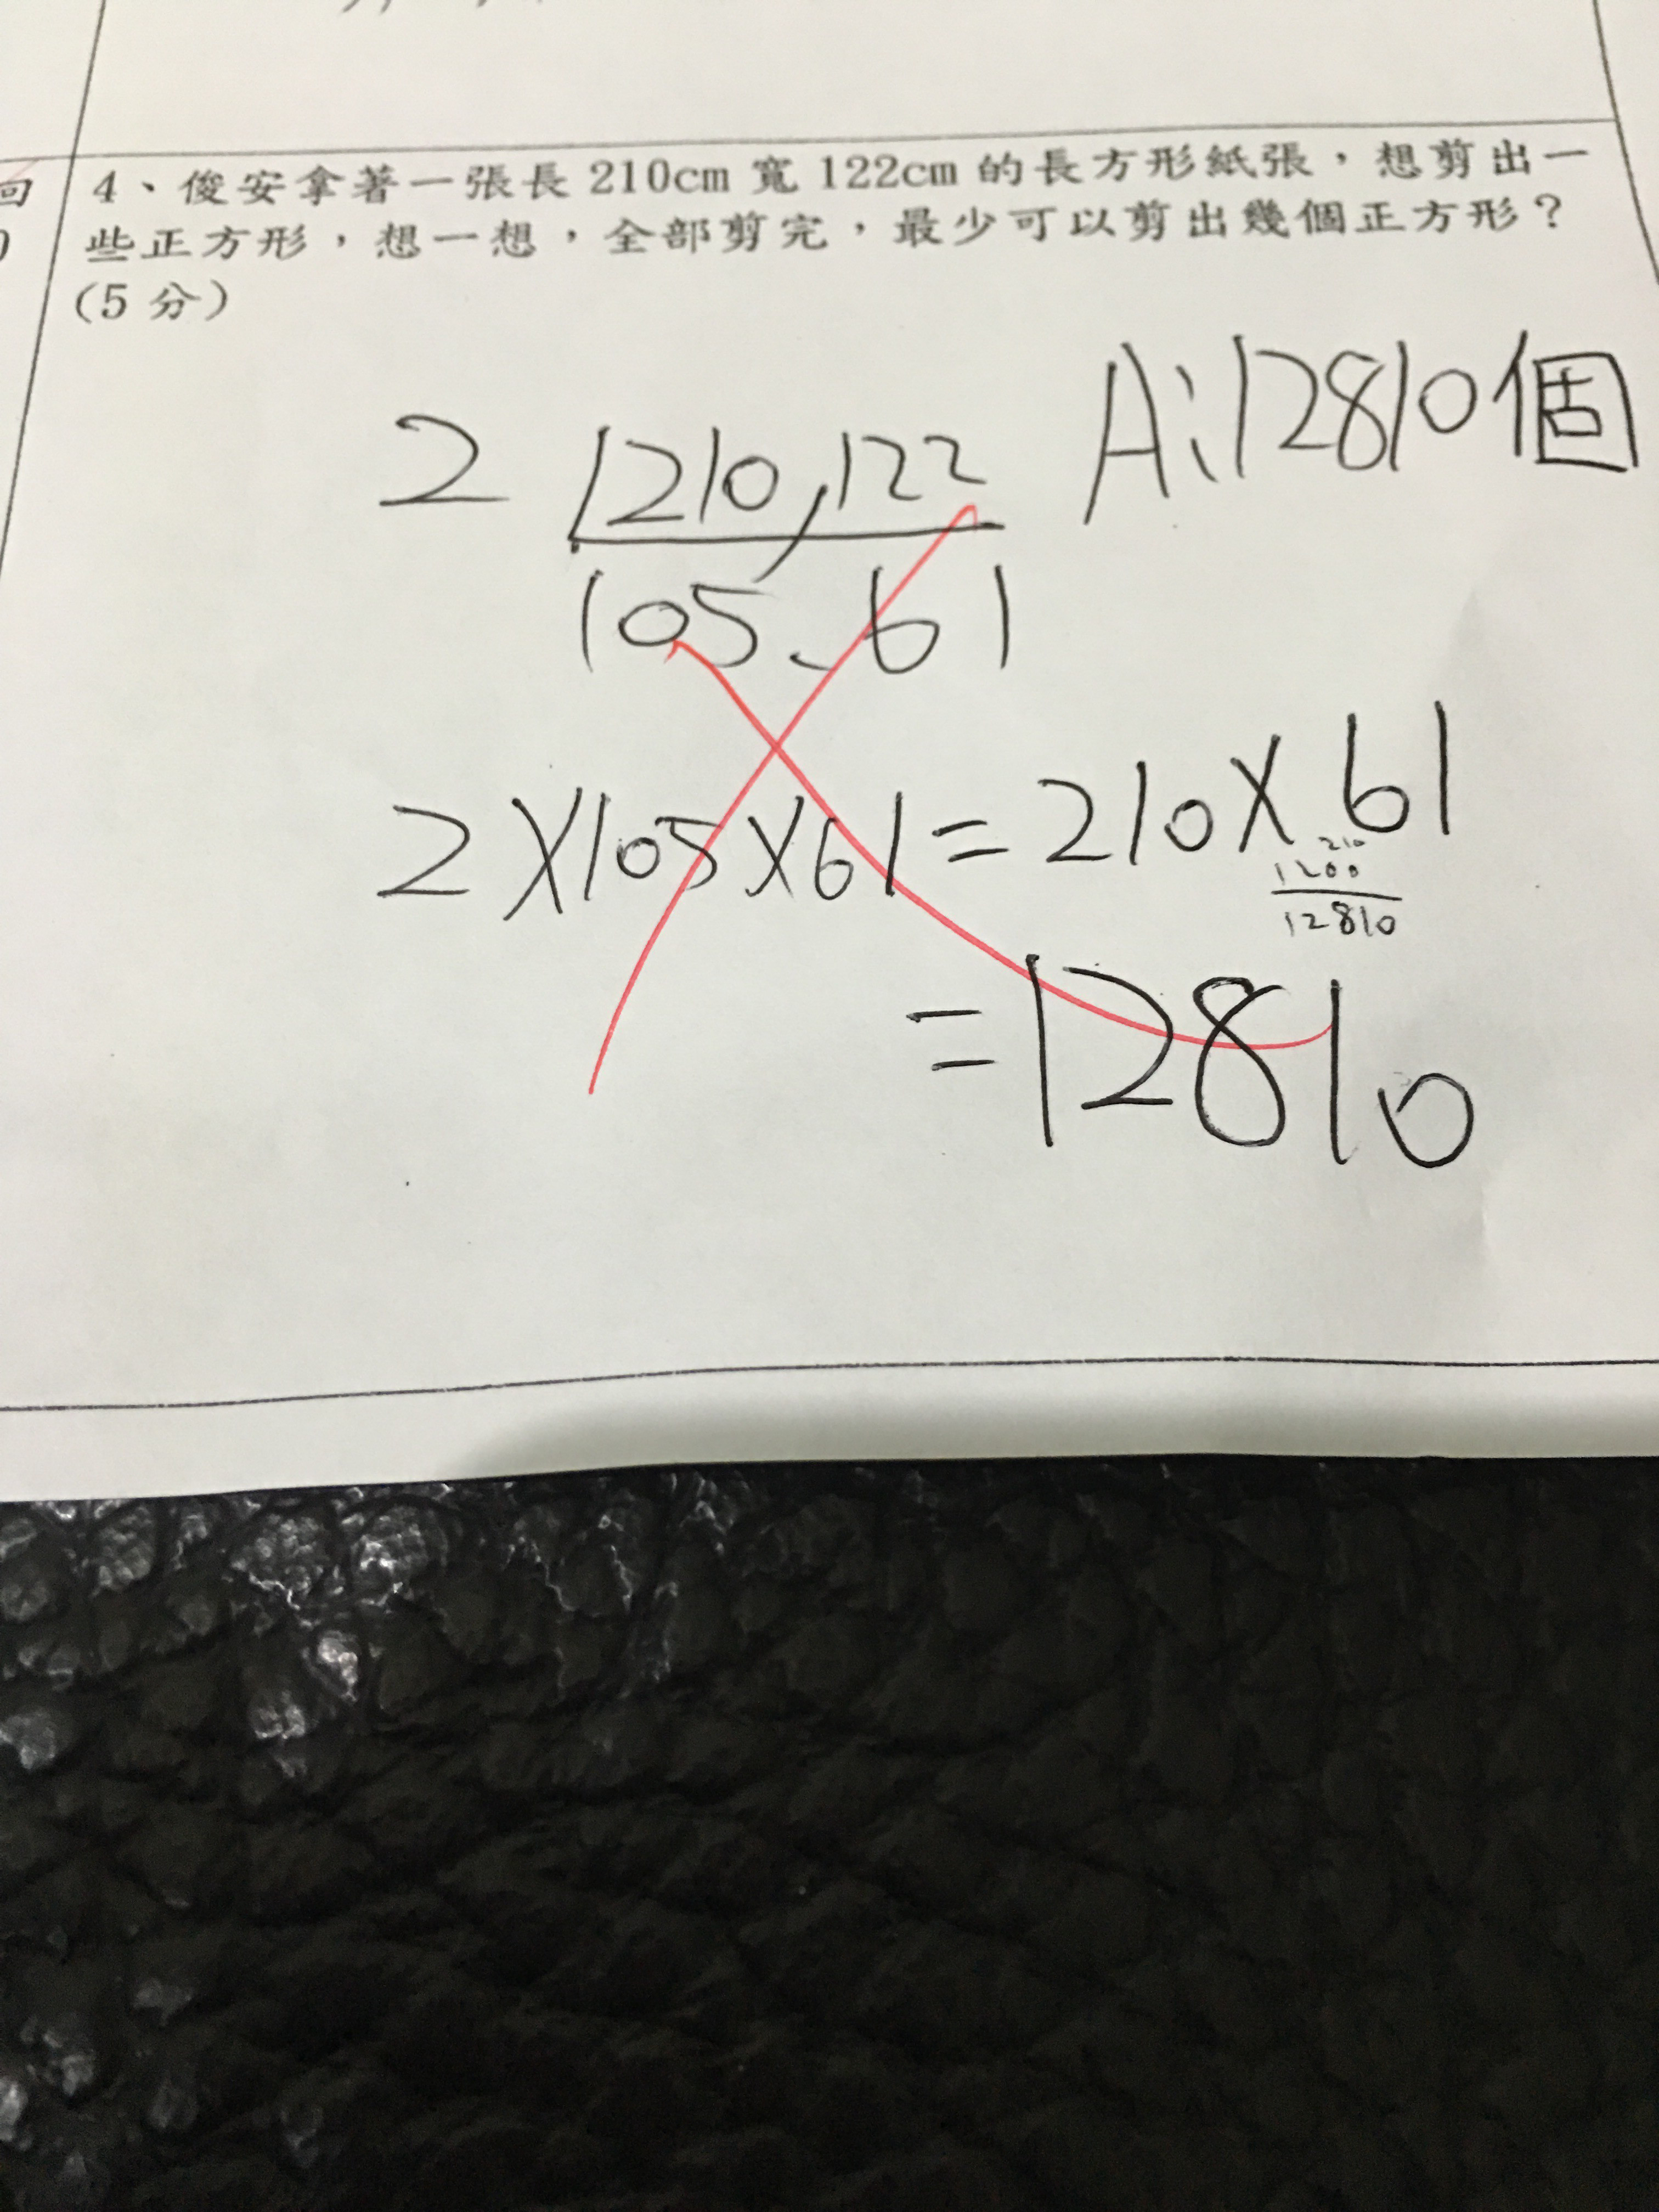 回
4、俊安拿著一張長 210cm 寬 122cm 的長方形紙張，想剪出一
些正方形，想一想，全部剪完，最少可以剪出幾個正方形？
(5 分)
A:12810個
2 210,122
105、61
2×105×61=210×61
210
1200
12810
=12810